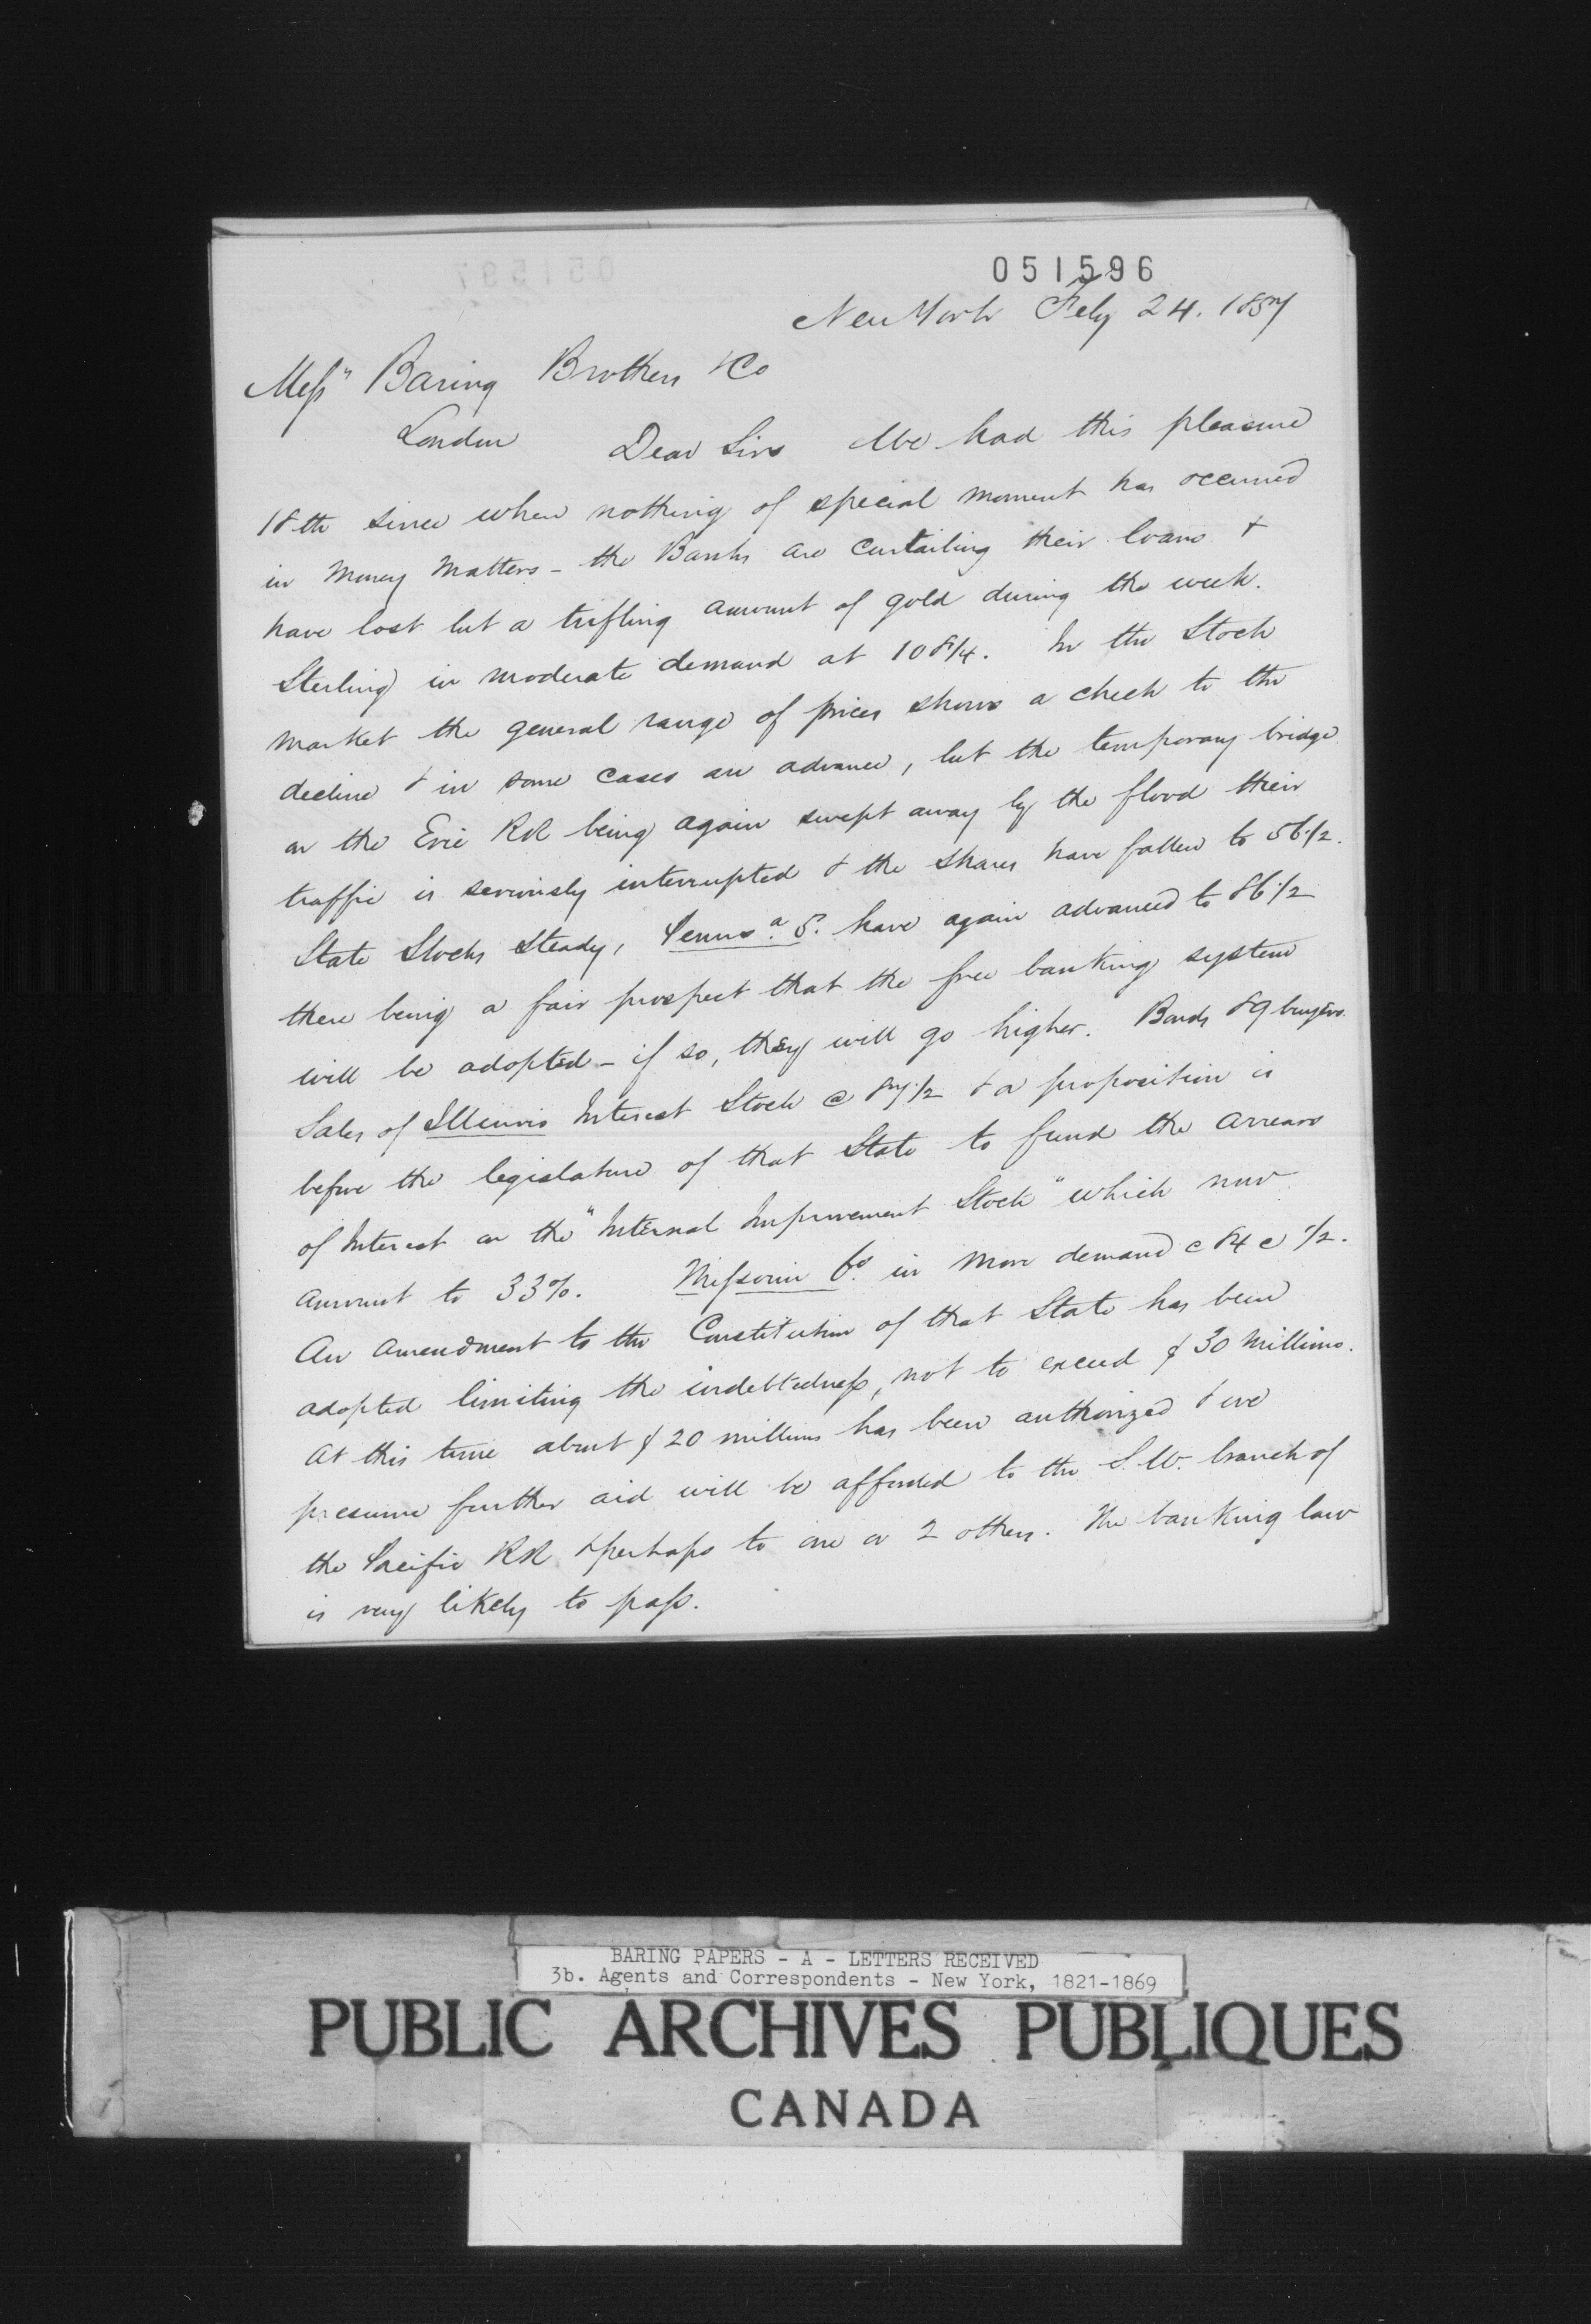 051596
051597
New York Feby 24. 1857
Messrs Baring Brothers & Co
London Dear Sirs We had this pleasure
18th since when nothing of special moment has occurred
in Money Matters - the Banks are curtailing their loans &
have lost but a trifling amount of gold during the week.
Sterling in moderate demand at 108 1/4. In the Stock
market the general range of prices shows a check to the
decline & in some cases an advance, but the temporary bridge
on the Erie RR being again swept away by the flood their
traffic is seriously interrupted & the shares have fallen to 56 1/2.
State Stocks steady, Penns.a 5. have again advanced to 86 1/2
there being a fair prospect that the free banking system
will be adopted - if so, they will go higher. Bonds 89 buyers.
Sales of Illinois Interest Stock @ 87 1/2 & a proposition is
before the legislature of that State to fund the arrears
of Interest on the "Internal Improvement Stock" which now
amount to 33%. Missouri 6s in more demand @ 84 @ 1/2.
An amendment to the Constitution of that State has been
adopted limiting the indebtedness, not to exceed $ 30 millions.
At this time about $ 20 millions has been authorized & we
presume further aid will be afforded to the S.W. branch of
the Pacific RR & perhaps to one or 2 others. The banking law
is very likely to pass.
BARING PAPERS - A - LETTERS RECEIVED
3b. Agents and Correspondents - New York, 1821-1869
PUBLIC ARCHIVES PUBLIQUES
CANADA